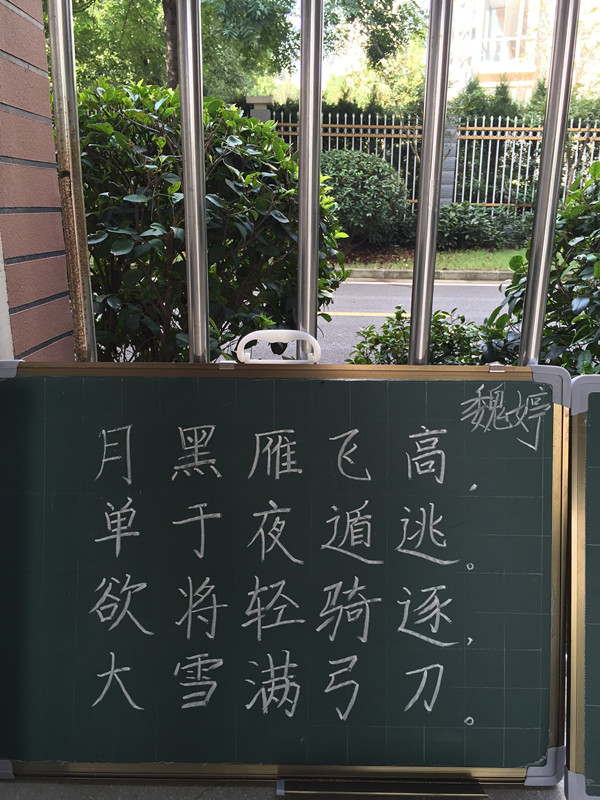 魏婷
月黑雁飞高,
单于夜遁逃。
欲将轻骑逐,
大雪满弓刀。